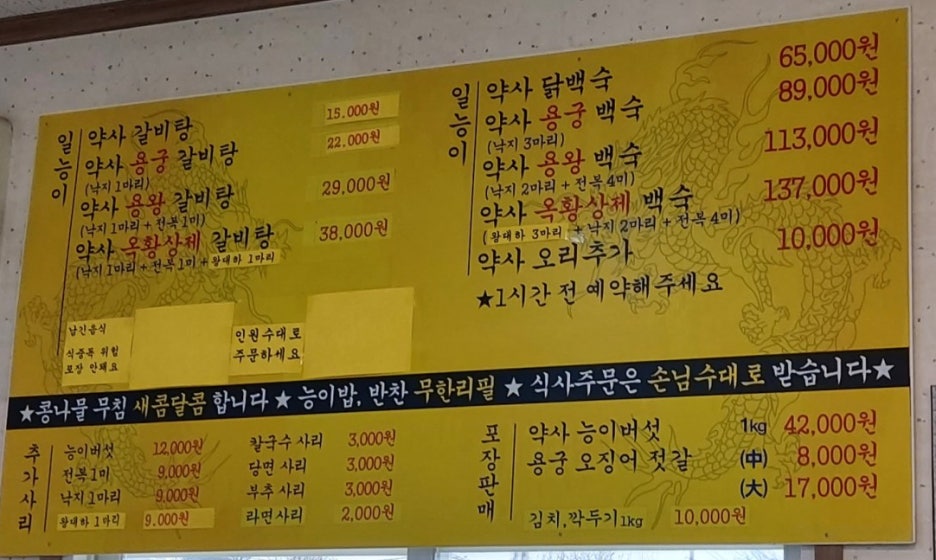 일능이
약사 갈비탕 15.000원
약사 용궁 갈비탕 22.000원
(낙지 1마리)
약사 용왕 갈비탕 29,000원
(낙지 1마리 + 전복 1미)
약사 옥황상제 갈비탕 38,000원
(낙지 1마리 + 전복 1미 + 왕대하 1마리
남긴음식
식중독 위험
포장 안돼요
인원수대로
주문하세요
일능이
약사 닭백숙 65,000원
약사 용궁 백숙 89,000원
(낙지 3마리)
약사 용왕 백숙 113,000원
(낙지 2마리 + 전복 4미)
약사 옥황상제 백숙 137,000원
(왕대하 3마리 + 낙지 2마리 + 전복 4미)
약사 오리추가 10,000원
★1시간 전 예약해주세요
★콩나물 무침 새콤달콤 합니다 ★ 능이밥, 반찬 무한리필 ★ 식사주문은 손님수대로 받습니다★
추가사리
능이버섯 12,000원
전복 1미 9,000원
낙지 1마리 9,000원
왕대하 1마리 9.000원
칼국수 사리 3,000원
당면 사리 3,000원
부추 사리 3,000원
라면사리 2,000원
포장판매
약사 능이버섯 1kg 42,000원
용궁 오징어 젓갈 (中) 8,000원
(大) 17,000원
김치,깍두기 1kg 10,000원